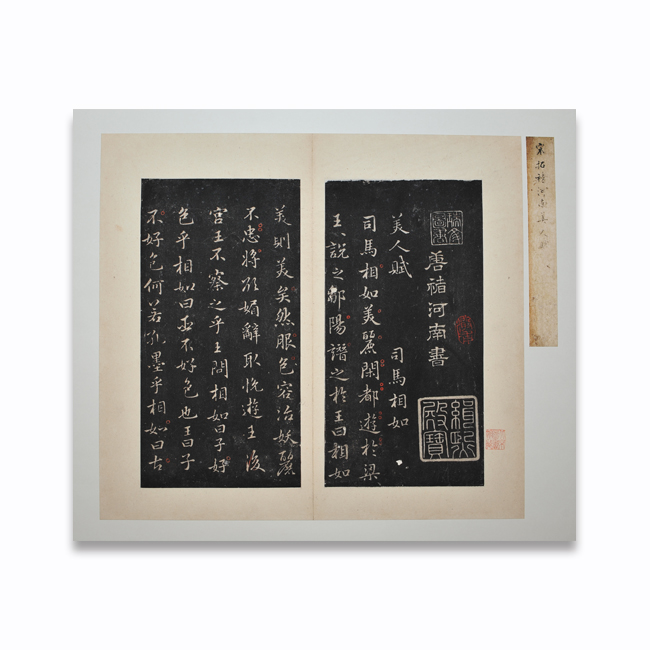 宋拓褚河南美人賦
唐褚河南書
緝熙殿寶
美人賦
司馬相如
司馬相如美麗閑都遊於梁
王王說之鄒陽譖之於王曰相如
美則美矣然服色容冶妖麗
不忠將欲媚辭取悅遊王後
宮王不察之乎王問相如曰子好
色乎相如曰臣不好色也王曰子
不好色何若孔墨乎相如曰古